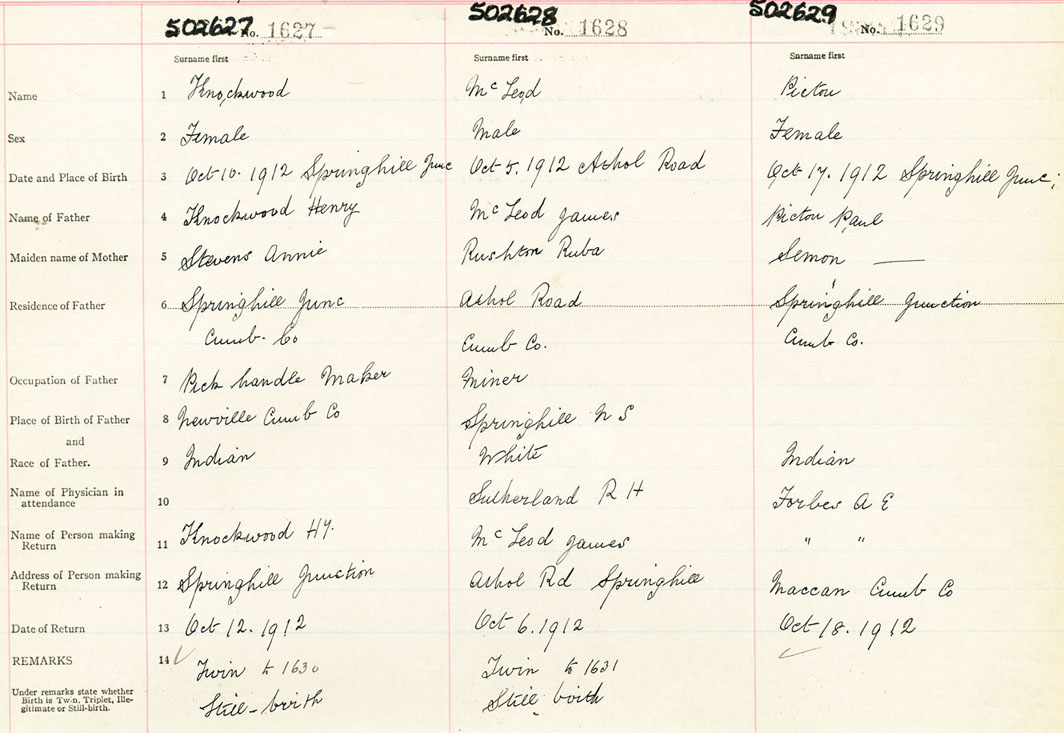 502627 No. 1627 502628 No. 1628 502629 No. 1629
Surname first Surname first Surname first
Name 1 Knockwood McLeod Pictou
Sex 2 Female Male Female
Date and Place of Birth 3 Oct 10. 1912 Springhill Junc Oct 5. 1912 Athol Road Oct 17. 1912 Springhill Junc.
Name of Father 4 Knockwood Henry McLeod James Pictou Paul
Maiden name of Mother 5 Stevens Annie Rushton Ruba Semon —
Residence of Father 6 Springhill Junc Athol Road Springhill Junction
Cumb. Co Cumb Co. Cumb Co.
Occupation of Father 7 Pick handle Maker Miner
Place of Birth of Father 8 Newville Cumb Co Springhill N S
and
Race of Father. 9 Indian White Indian
Name of Physician in
attendance 10 Sutherland R H Forbes A E
Name of Person making
Return 11 Knockwood Hy. McLeod James " "
Address of Person making
Return 12 Springhill Junction Athol Rd Springhill Maccan Cumb Co
Date of Return 13 Oct 12. 1912 Oct 6. 1912 Oct 18. 1912
REMARKS 14 ✓ Twin to 1630 Twin to 1631 ✓
Under remarks state whether
Birth is Twin, Triplet, Ille-
gitimate or Still-birth. Still-birth Still birth